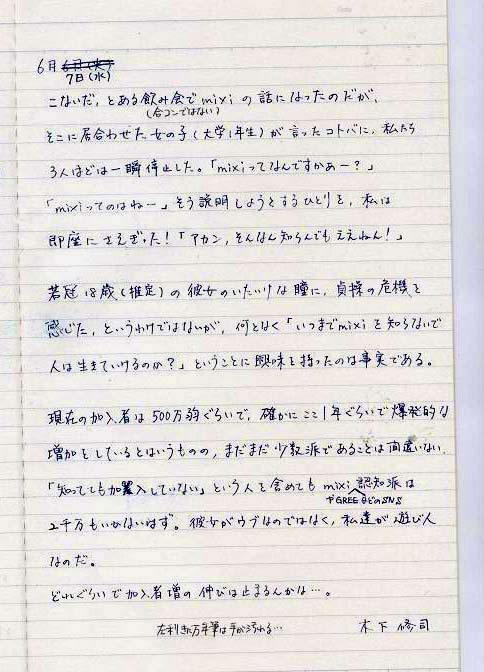 6月 6日(火)
7日(水)
こないだ、とある飲み会でmixiの話になったのだが、
(合コンではない)
そこに居合わせた女の子(大学1年生)が言ったコトバに、私たち
3人ほどは一瞬停止した。「mixiってなんですかぁー?」
「mixiってのはねー」そう説明しようとするひとりを、私は
即座にさえぎった!「アカン、そんなん知らんでもええねん!」
若冠18歳(推定)の彼女のいたいけな瞳に、貞操の危機を
感じた、というわけではないが、何となく「いつまでmixiを知らないで
人は生きていけるのか?」ということに興味を持ったのは事実である。
現在の加入者は500万弱ぐらいで、確かにここ1年ぐらいで爆発的な
増加をしているとはいうものの、まだまだ少数派であることは間違いない。
「知ってても加入していない」という人を含めてもmixi認知派は
やGREEなどのSNS
2千万もいかないはず。彼女がウブなのではなく、私達が遊び人
なのだ。
どれぐらいで加入者増の伸びは止まるんかな…。
左利きに万年筆は手が汚れる… 木下修司